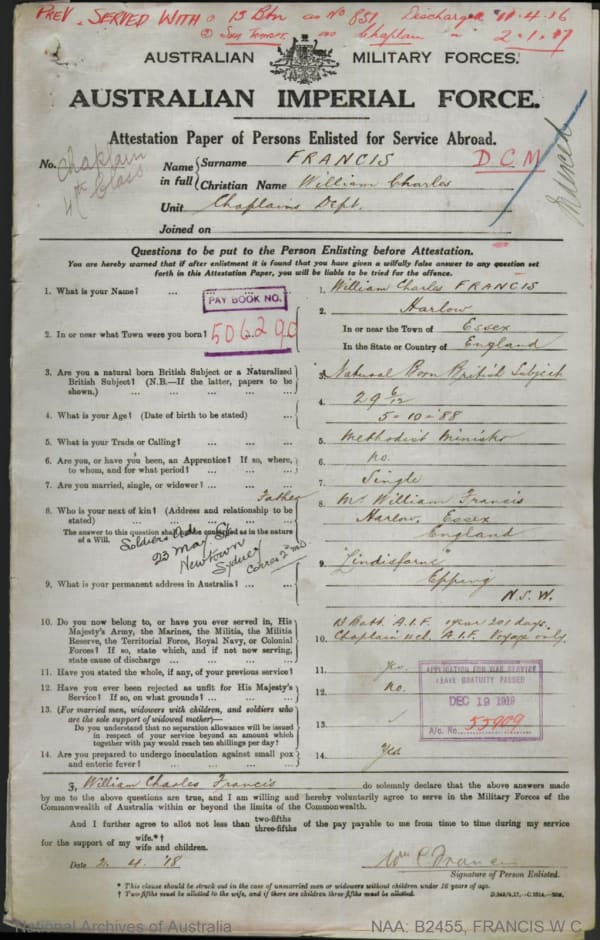 PREV. SERVED WITH 13 Btn as No 831, Discharged 11.4.16
as Chaplain 2.1.17
AUSTRALIAN MILITARY FORCES.
AUSTRALIAN IMPERIAL FORCE.
Attestation Paper of Persons Enlisted for Service Abroad.
No. Chaplain 4th Class
Name in full { Surname FRANCIS D.C.M
Christian Name William Charles
Unit Chaplains Dept.
Joined on
Questions to be put to the Person Enlisting before Attestation.
You are hereby warned that if after enlistment it is found that you have given a wilfully false answer to any question set
forth in this Attestation Paper, you will be liable to be tried for the offence.
1. What is your Name? ... 1. William Charles FRANCIS
PAY BOOK NO.
506290
2. In or near what Town were you born? 2. Harlow
In or near the Town of Essex
In the State or Country of England
3. Are you a natural born British Subject or a Naturalized
British Subject? (N.B.—If the latter, papers to be
shown.) ... 3. Natural Born British Subject
4. What is your Age? (Date of birth to be stated) ... 4. 29 6/12
5-10-88
5. What is your Trade or Calling? ... 5. Methodist Minister
6. Are you, or have you been, an Apprentice? If so, where,
to whom, and for what period? ... 6. No.
7. Are you married, single, or widower? ... 7. Single
8. Who is your next of kin? (Address and relationship to be
stated) ... Father 8. Mr William Francis
Harlow, Essex
England
The answer to this question shall be construed as in the nature
of a Will.
23 May St
Newtown
Sydney
9. What is your permanent address in Australia? ... 9. "Lindisfarne"
Epping
N.S.W.
10. Do you now belong to, or have you ever served in, His
Majesty's Army, the Marines, the Militia, the Militia
Reserve, the Territorial Force, Royal Navy, or Colonial
Forces? If so, state which, and if not now serving,
state cause of discharge ... 10. 13 Batt. A.I.F. 1 year 201 days.
Chaplain A.I.F. Voyage only.
11. Have you stated the whole, if any, of your previous service? 11. Yes
12. Have you ever been rejected as unfit for His Majesty's
Service? If so, on what grounds? ... 12. No.
APPLICATION FOR WAR SERVICE
LEAVE GRATUITY PASSED
DEC 19 1919
A/c. No. 55909
13. (For married men, widowers with children, and soldiers who
are the sole support of widowed mother)—
Do you understand that no separation allowance will be issued
in respect of your service beyond an amount which
together with pay would reach ten shillings per day? 13.
14. Are you prepared to undergo inoculation against small pox
and enteric fever? 14. Yes
I, William Charles Francis do solemnly declare that the above answers made
by me to the above questions are true, and I am willing and hereby voluntarily agree to serve in the Military Forces of the
Commonwealth of Australia within or beyond the limits of the Commonwealth.
And I further agree to allot not less than two-fifths three-fifths of the pay payable to me from time to time during my service
for the support of my wife.*† wife and children.
Date 2. 4. '18 Wm C Francis
Signature of Person Enlisted.
* This clause should be struck out in the case of unmarried men or widowers without children under 16 years of age.
† Two fifths must be allotted to the wife, and if there are children three fifths must be allotted.
National Archives of Australia NAA: B2455, FRANCIS W C